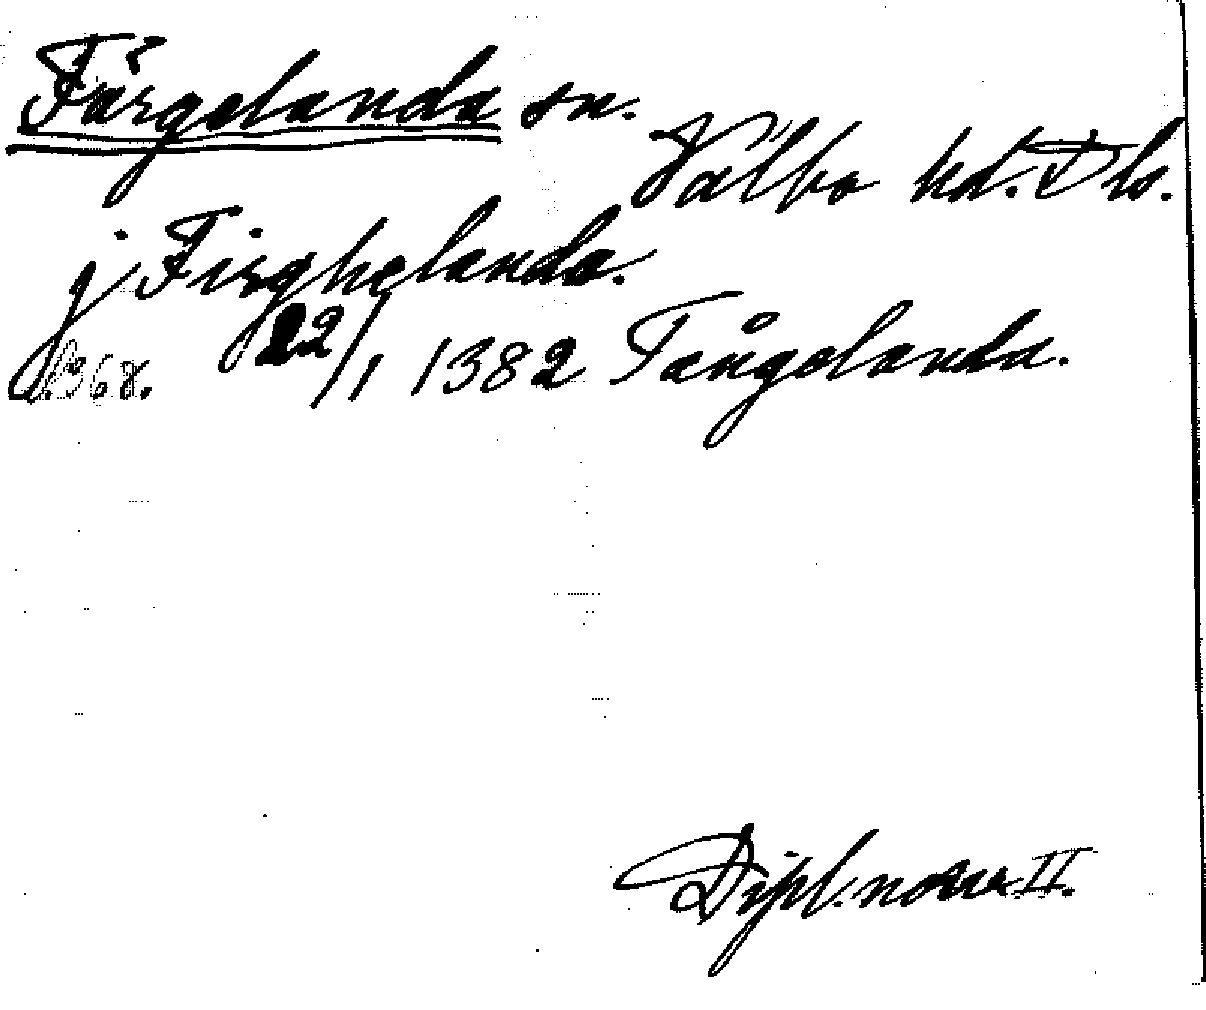 Färgelanda sn.
Valbo hd. Dls.
j Firghelanda.
1368. 22/1 1382 Fångolanda.
Dipl. norv. II.